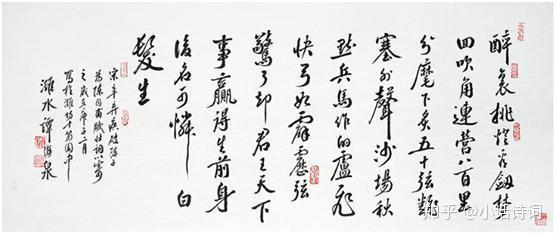 醉裏挑燈看劍梦
回吹角連营八百里
分麾下炙五十弦翻
塞外聲沙場秋
點兵馬作的盧飛
快弓如霹靂弦
驚了却君王天下
事贏得生前身
後名可憐白
髮生
宋辛弃疾破陣子
為陳同甫賦壯詞以寄
之歲
写於濰坊十笏园中
濰水譚海泉
知乎 @小话诗词